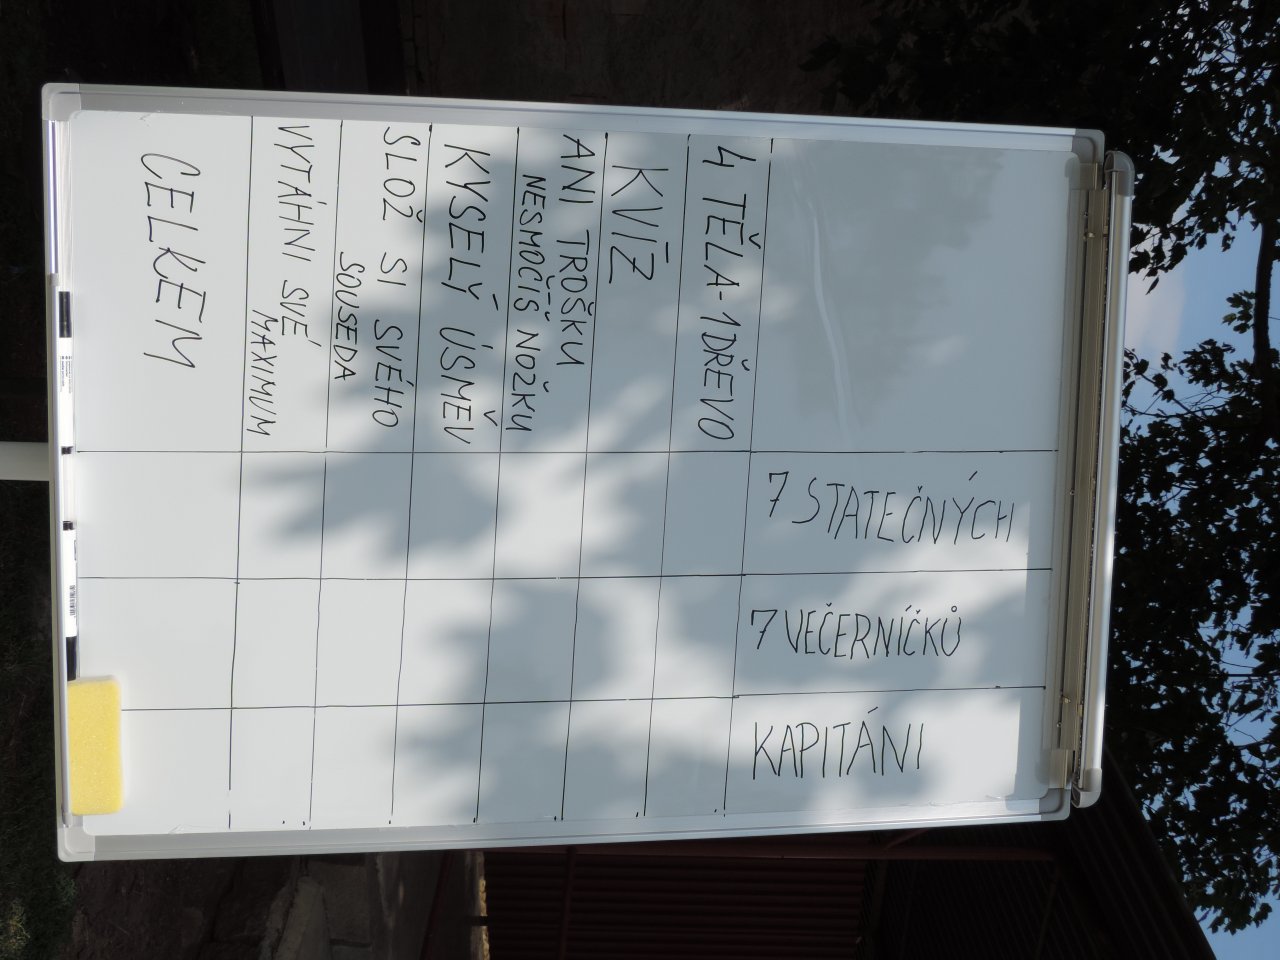 7 STATEČNÝCH
7 VEČERNÍČKŮ
KAPITÁNI
4 TĚLA-1DŘEVO
KVÍZ
ANI TROŠKU
NESMOČÍŠ NOŽKU
KYSELÝ ÚSMĚV
SLOŽ SI SVÉHO
SOUSEDA
VYTÁHNI SVÉ
MAXIMUM
CELKEM